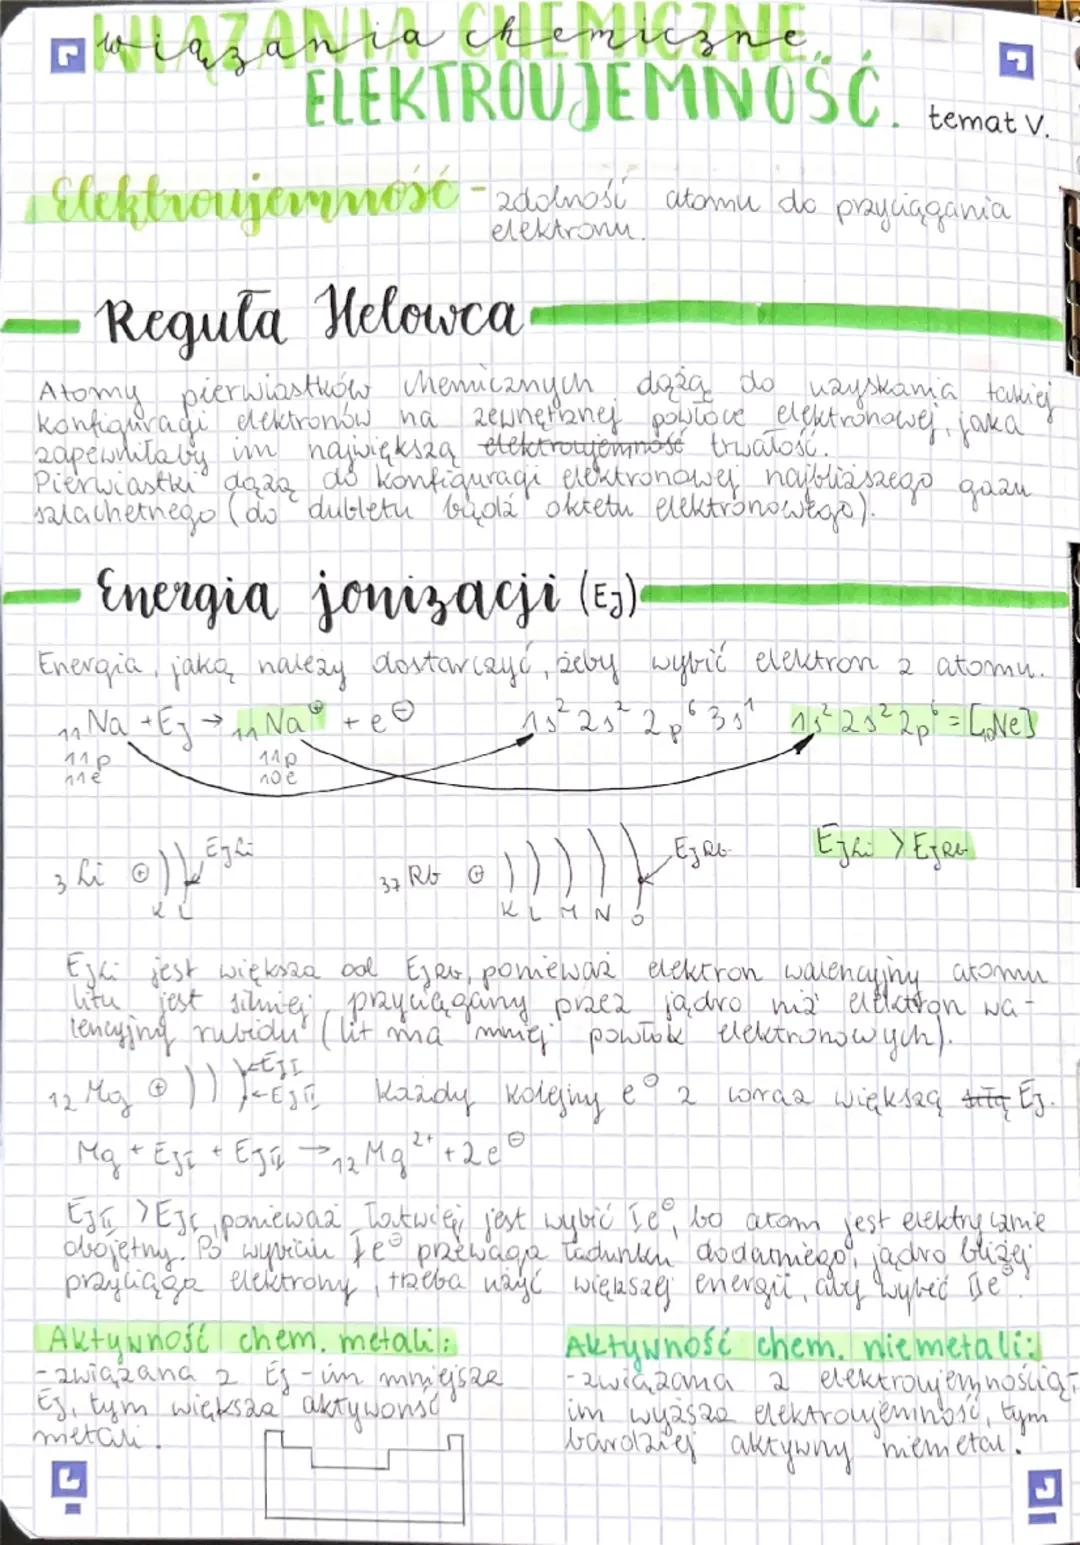 WIĄZANIA CHEMICZNE.
wiązania chemiczne
ELEKTROUJEMNOŚĆ. temat V.
Elektroujemność - zdolność atomu do przyciągania
elektronu.
Reguła Helowca
Atomy pierwiastków chemicznych dążą do uzyskania takiej
konfiguracji elektronów na zewnętrznej powłoce elektronowej, jaka
zapewniłaby im największą elektroujemność trwałość.
Pierwiastki dążą do konfiguracji elektronowej najbliższego gazu
szlachetnego (do dubletu bądź oktetu elektronowego).
Energia jonizacji (EJ)
Energia, jaką należy dostarczyć, żeby wybić elektron z atomu.
₁₁Na + EJ → ₁₁Na⊕ + e⊖ 1s² 2s² 2p⁶ 3s¹ 1s² 2s² 2p⁶ = [₁₀Ne]
11p 11p
11e 10e
₃Li ⊕ EJLi ₃₇Rb ⊕ EJRb EJLi > EJRb
K L K L M N O
EJLi jest większa od EJRb, ponieważ elektron walencyjny atomu
litu jest silniej przyciągany przez jądro niż elektron wa-
lencyjny rubidu (lit ma mniej powłok elektronowych).
₁₂Mg ⊕ ←EJI
←EJII Każdy kolejny e⊖ z coraz większą siłą EJ.
Mg + EJI + EJII → ₁₂Mg²⁺ + 2e⊖
EJII > EJI, ponieważ łatwiej jest wybić Ie⊖, bo atom jest elektrycznie
obojętny. Po wybiciu Ie⊖ przewaga ładunku dodatniego, jądro bliżej
przyciąga elektrony, trzeba użyć większej energii, aby wybić IIe⊖.
Aktywność chem. metali:
- związana z EJ - im mniejsza
EJ, tym większa aktywność
metali.
Aktywność chem. niemetali:
- związana z elektroujemnością,
im wyższa elektroujemność, tym
bardziej aktywny niemetal.